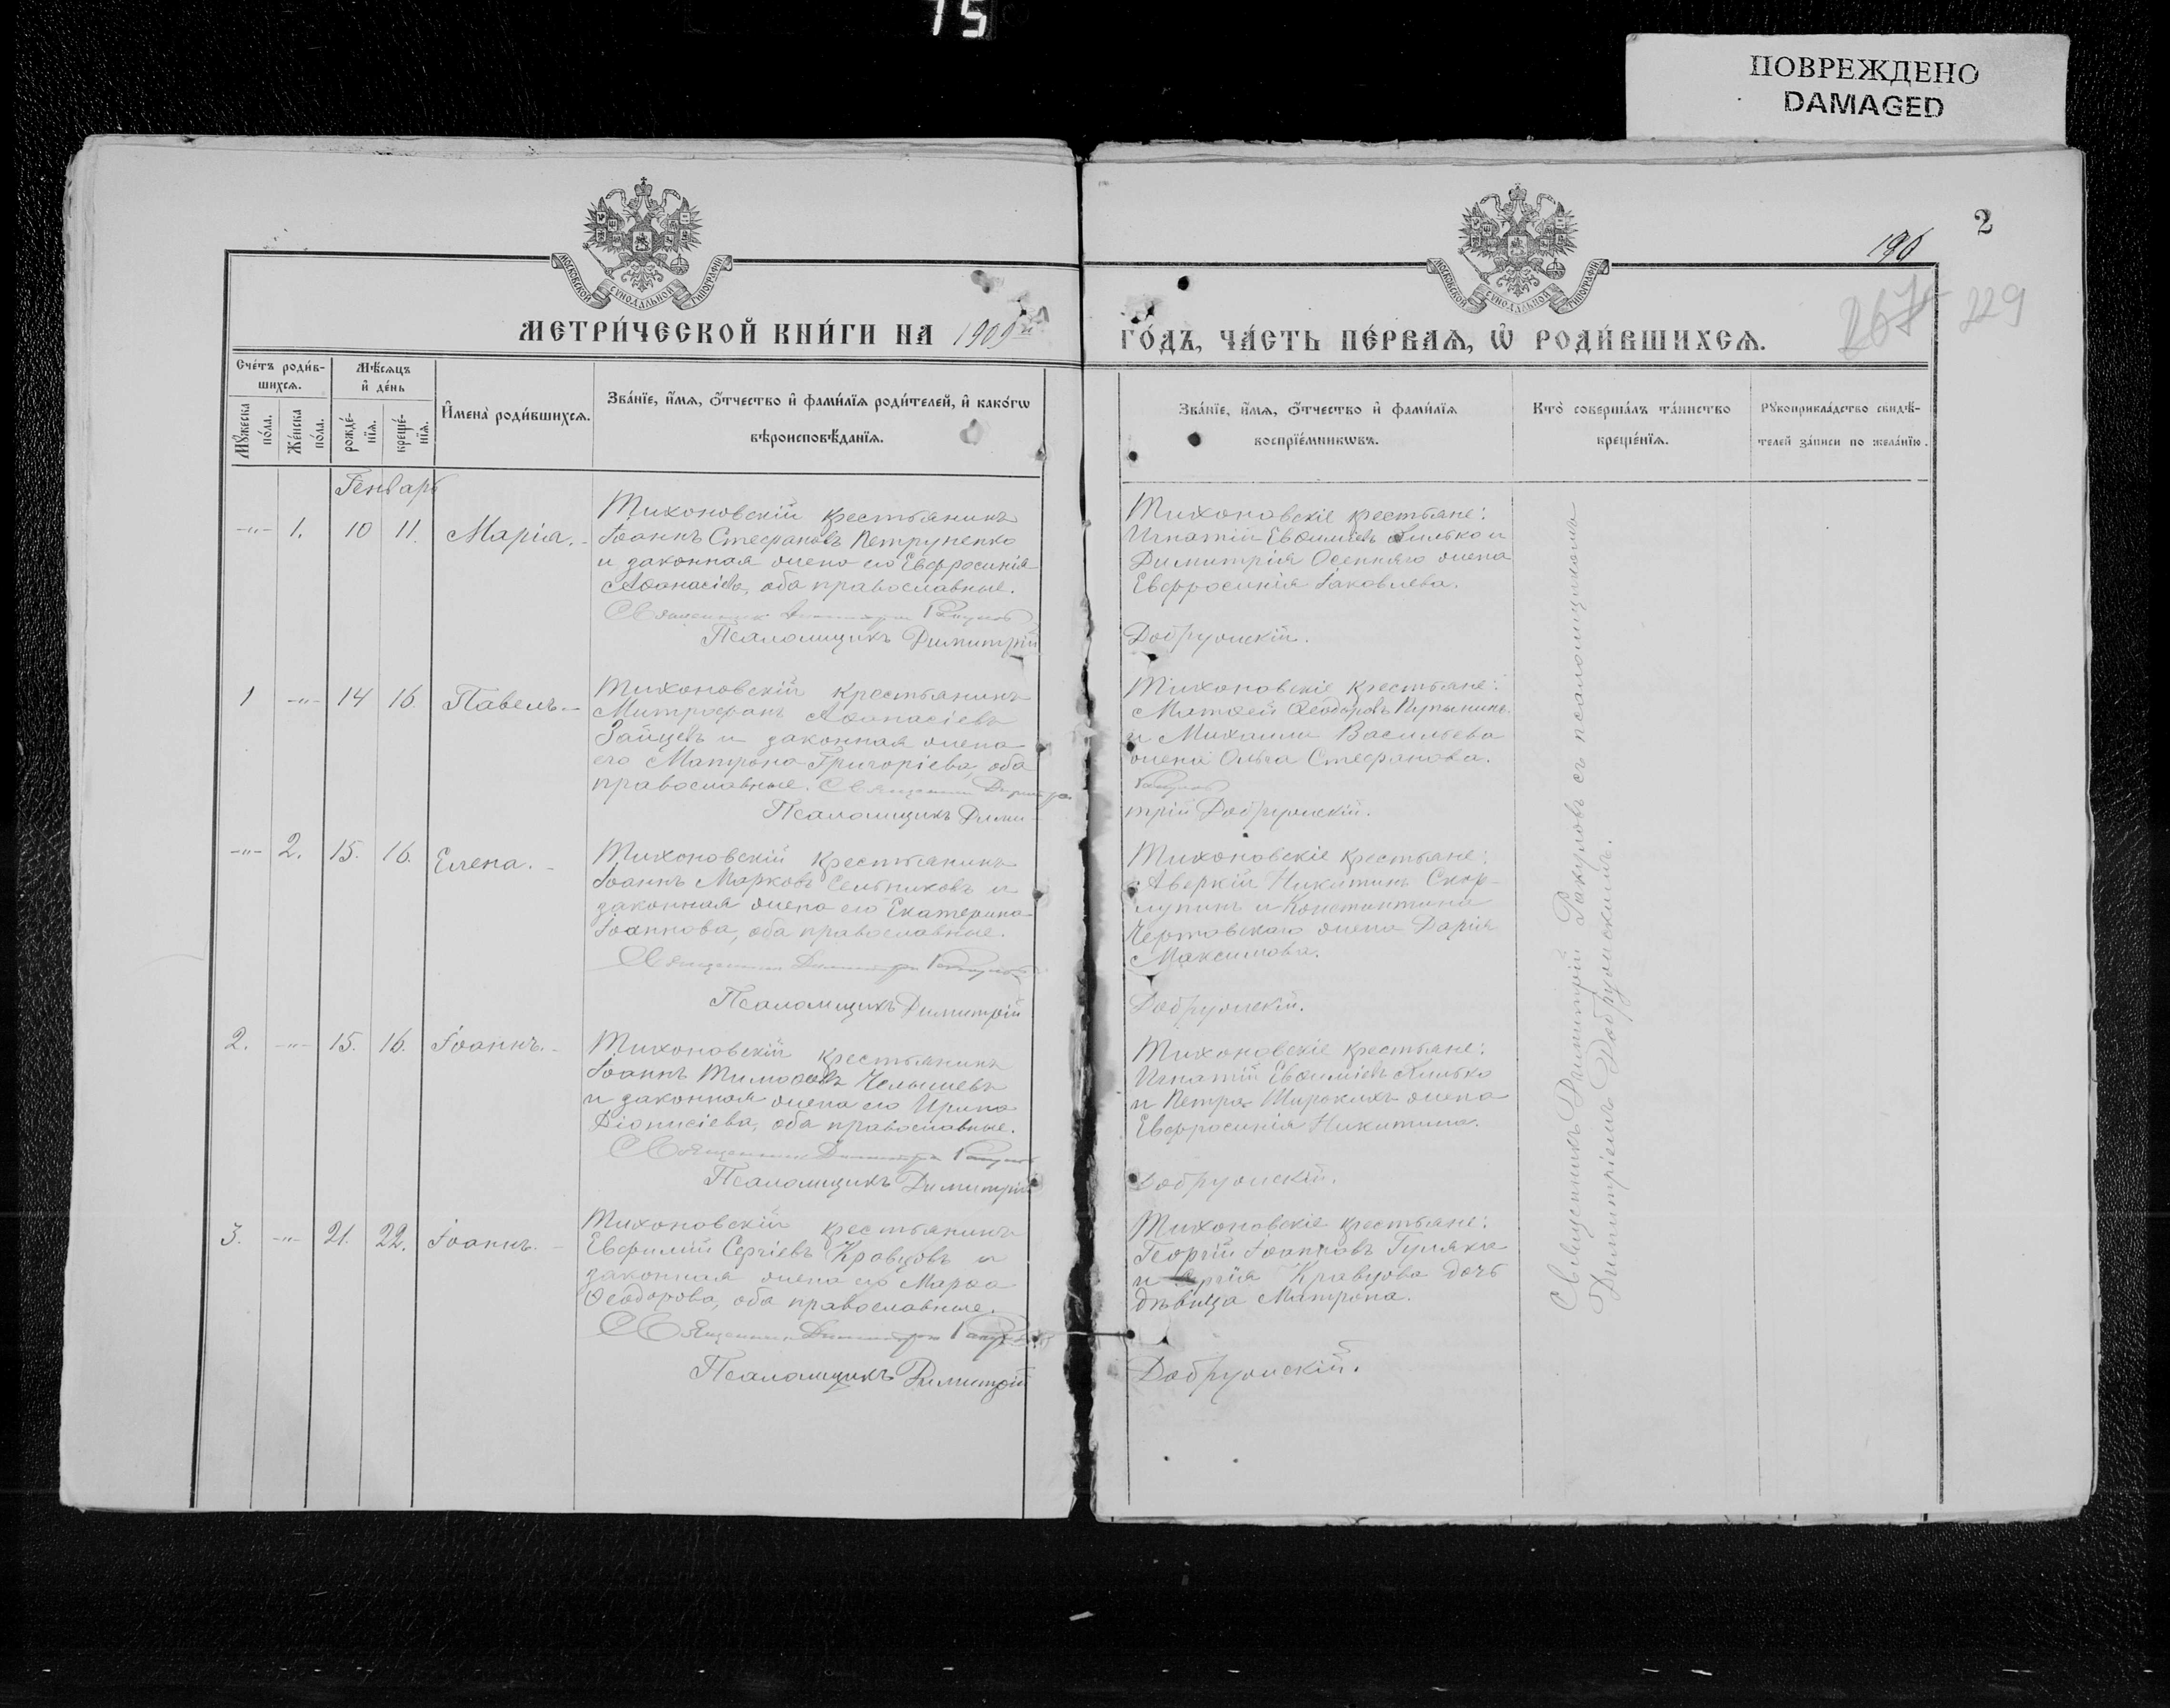 15
ПОВРЕЖДЕНО
DAMAGED
2
196
267 229
МОСКОВСКОЙ СѴНОДАЛЬНОЙ ТИПОГРАФІИ
МОСКОВСКОЙ СѴНОДАЛЬНОЙ ТИПОГРАФІИ
МЕТРИ́ЧЕСКОЙ КНИ́ГИ НА 1909й
ГО́ДЪ, ЧА́СТЬ ПЕ́РВАѦ, Ѡ҆ РОДИ́ВШИХСѦ.
Сче́тъ роди́в-
шихсѧ.
Мꙋ́жеска по́ла.
Же́нска по́ла.
Мѣ́сѧцъ
и҆ де́нь
рожде́-
нїѧ.
креще́-
нїѧ.
И҆мена̀ роди́вшихсѧ.
Зва́нїе, и҆́мѧ, ѻ҆́тчество и҆ фами́лїѧ роди́телей, и҆ како́гѡ
вѣроисповѣ́данїѧ.
Зва́нїе, и҆́мѧ, ѻ҆́тчество и҆ фами́лїѧ
воспрїе́мникѡвъ.
Кто̀ соверша́лъ та́инство
креще́нїѧ.
Рꙋкоприкла́дство свидѣ́-
телей за́писи по жела́нїю.
Генварь
-"- 1. 10 11. Марія.
Тихоновскій крестьянинъ
Іоаннъ Стефановъ Петруненко
и законная жена его Евфросинія
Аѳанасіева, оба православные.
Священникъ Димитрій Ракуловъ
Псаломщикъ Димитрій
Тихоновскіе крестьяне:
Игнатій Евѳиміевъ и
Димитрія Осенняго жена
Евфросинія Іаковлева.
Добружскій.
1 -"- 14 16. Павелъ.
Тихоновскій крестьянинъ
Митрофанъ Аѳанасіевъ
Зайцевъ и законная жена
его Матрона Григоріева, оба
православные. Священникъ Димитрій
Псаломщикъ Дими-
Тихоновскіе крестьяне:
Матѳей Ѳеодоровъ
и Михаила Васильева
жена Ольга Стефанова.
Ракуловъ
трій Добружскій.
-"- 2. 15. 16. Елена.
Тихоновскій крестьянинъ
Іоаннъ Марковъ Сельниковъ и
законная жена его Екатерина
Іоаннова, оба православные.
Священникъ Димитрій Ракуловъ
Псаломщикъ Димитрій
Тихоновскіе крестьяне:
Аверкій Никитинъ Скор-
лупинъ и Константина
Чертовскаго жена Дарія
Максимова.
Добружскій.
2. -"- 15. 16. Іоаннъ.
Тихоновскій крестьянинъ
Іоаннъ Тимоѳеевъ Челышевъ
и законная жена его Ирина
Діонисіева, оба православные.
Священникъ Димитрій Ракуловъ
Псаломщикъ Димитрій
Тихоновскіе крестьяне:
Игнатій Евѳиміевъ
и Петра Широкихъ жена
Евфросинія Никитина.
Добружскій.
3. -"- 21. 22. Іоаннъ.
Тихоновскій крестьянинъ
Евфимій Сергіевъ Кравцовъ и
законная жена его Марѳа
Ѳеодорова, оба православные.
Священникъ Димитрій Ракуловъ
Псаломщикъ Димитрій
Тихоновскіе крестьяне:
Георгій Іоанновъ Гуляка
и Сергія Кравцова дочь
дѣвица Матрона.
Добружскій.
Священникъ Димитрій Ракуловъ съ псаломщикомъ
Димитріемъ Добружскимъ.